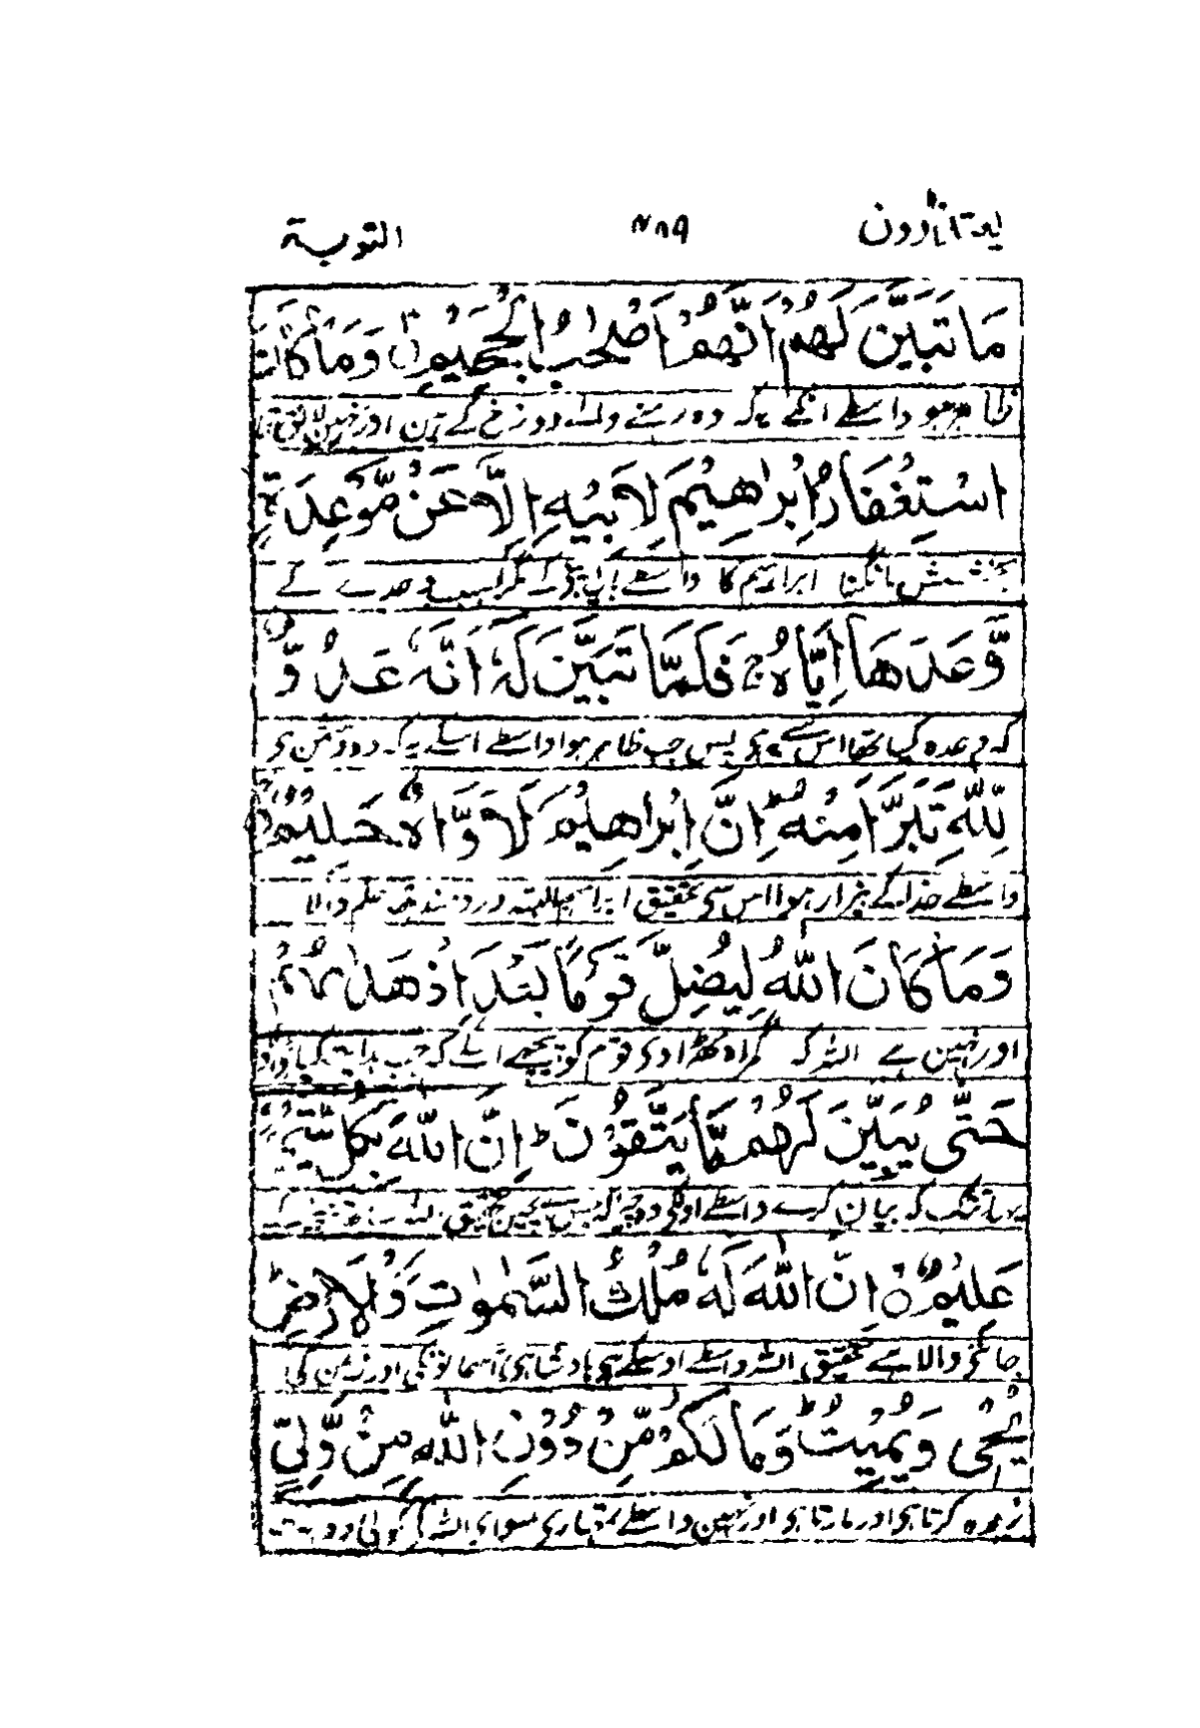 یعتذرون ۴۸۹ التوبة
مَا تَبَيَّنَ لَهُمْ اَنَّهُمْ اَصْحٰبُ الْجَحِيْمِ وَمَا كَانَ
ظاہر ہو واسطے انکے یہ کہ وہ رہنے والے دوزخ کے ہین اور نہین لائق تھا
اسْتِغْفَارُ اِبْرٰهِيْمَ لِاَبِيْهِ اِلَّا عَنْ مَّوْعِدَةٍ
بخشش مانگنا ابراہیم کا واسطے باپ اپنے کے مگر بسبب وعدے کے
وَّعَدَهَا اِيَّاهُ ج فَلَمَّا تَبَيَّنَ لَهٗ اَنَّهٗ عَدُوٌّ
کہ وعدہ کیا تھا اس سے پس جب ظاہر ہوا واسطے اسکے یہ کہ وہ دشمن ہی
لِّلّٰهِ تَبَرَّاَ مِنْهُ ط اِنَّ اِبْرٰهِيْمَ لَاَوَّاهٌ حَلِيْمٌ
واسطے خدا کے بیزار ہوا اس سی تحقیق ابراہیم البتہ دردمند تھا حلم والا
وَمَا كَانَ اللّٰهُ لِيُضِلَّ قَوْمًا بَعْدَ اِذْ هَدٰىهُمْ
اور نہین ہے اللہ کہ گمراہ ٹھہرادی قوم کو پیچھے اسکے کہ جب ہدایت کیا
حَتّٰى يُبَيِّنَ لَهُمْ مَّا يَتَّقُوْنَ ط اِنَّ اللّٰهَ بِكُلِّ شَيْءٍ
یہانتک کہ بیان کرے واسطے اونکی وہ چیز کہ بچین تحقیق اللہ
عَلِيْمٌ اِنَّ اللّٰهَ لَهٗ مُلْكُ السَّمٰوٰتِ وَالْاَرْضِ ط
جاننے والا ہے تحقیق اللہ واسطے اوسکے ہی بادشاہی آسمانونکی اور زمین کی
يُحْيٖ وَيُمِيْتُ ط وَمَا لَكُمْ مِّنْ دُوْنِ اللّٰهِ مِنْ وَّلِيٍّ
زندہ کرتا ہی اور مارتا ہی اور نہین واسطے تمہاری سوای اللہ کے کوئی دوست